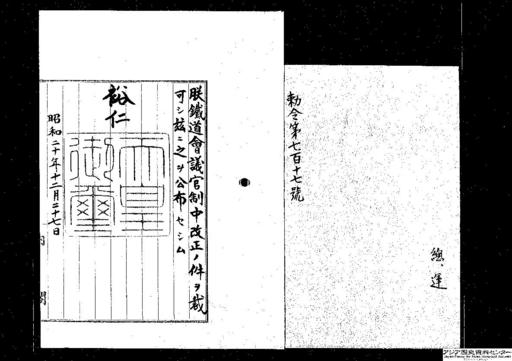 總、運
勅令第七百十七號
朕鐵道會議官制中改正ノ件ヲ裁
可シ茲ニ之ヲ公布セシム
裕仁
天皇
御璽
昭和二十年十二月二十七日
内
閣
アジア歴史資料センター